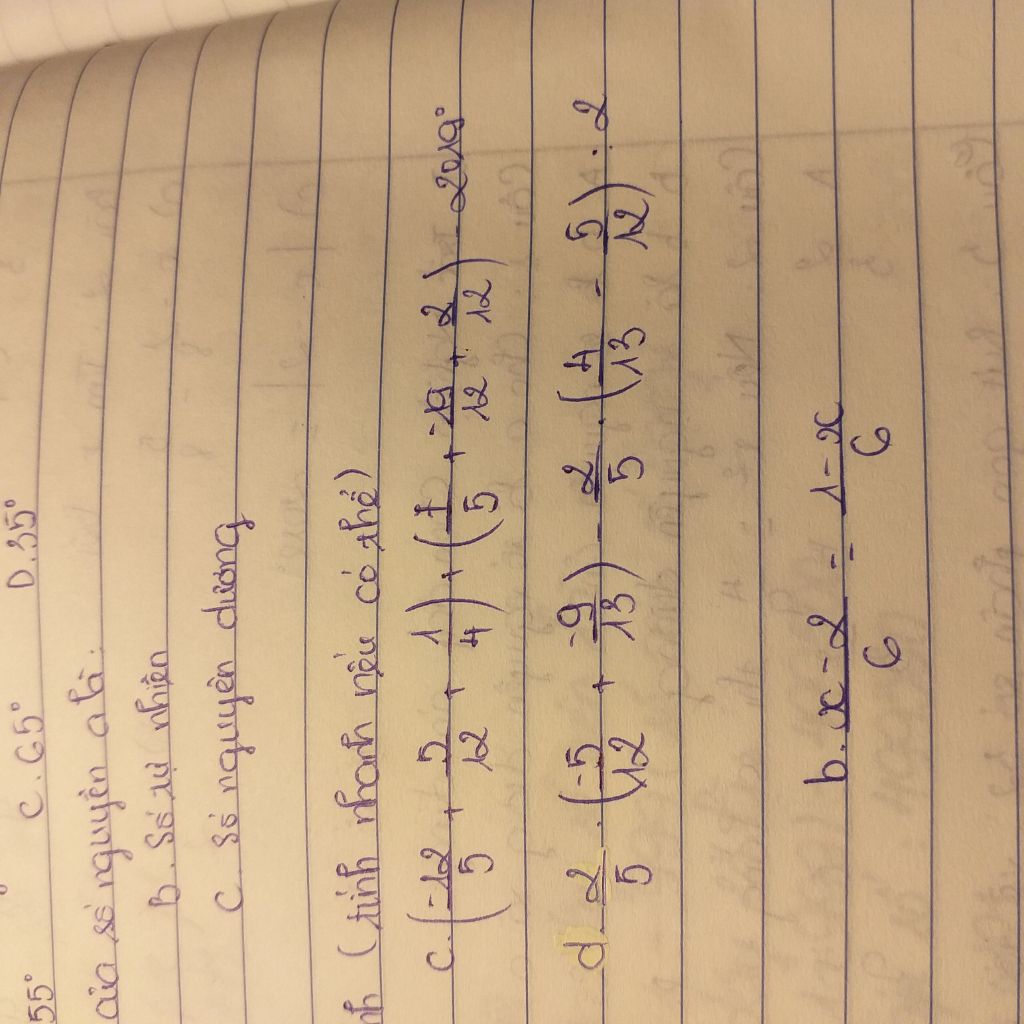 55° C. 65° D. 35°
của số nguyên a là:
B. Số tự nhiên
C. Số nguyên dương
nh (tính nhanh nếu có thể)
c. (-12/5 + 5/12 + 1/4) + (7/5 + -19/12 + 2/12) - 2019°
d. 2/5 . (-5/12 + -9/13) - 2/5 . (4/13 - 5/12) . 2
b. x-2/6 = 1-x/6